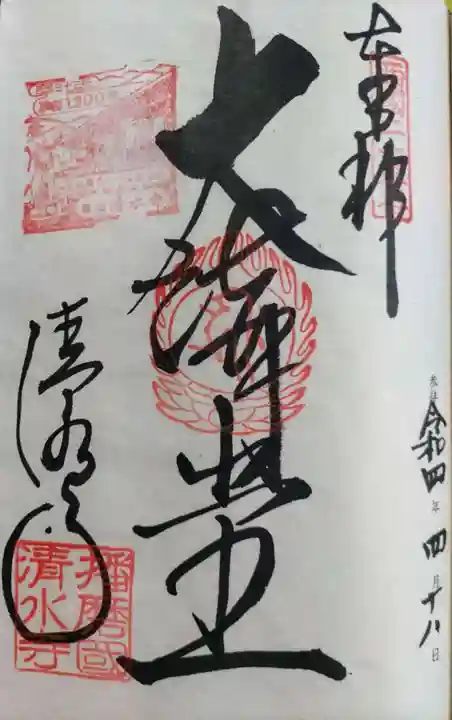 奉拝
大講堂
清水寺
播磨國
清水寺
参拝 令和四年 四月十八日